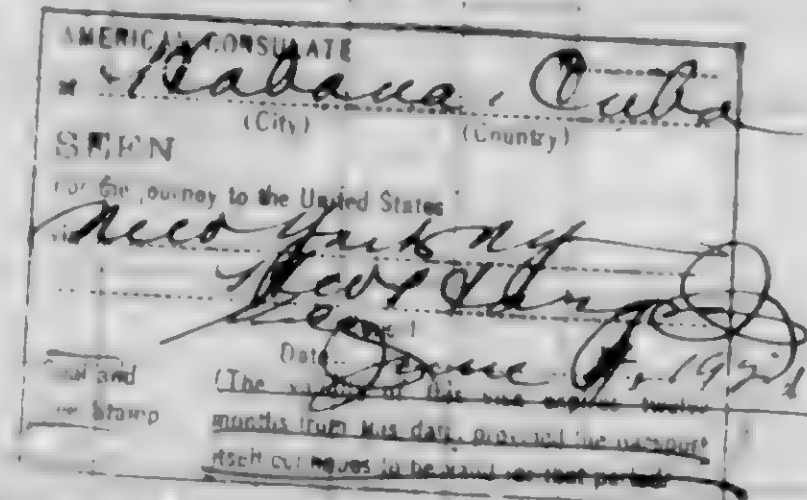 AMERICAN CONSULATE
Habana, Cuba
(City) (Country)
SEEN
For the journey to the United States
via New York NY
Date June
Seal and (The validity of this visa expires twelve
Stamp months from this date provided the passport
itself continues to be valid for that period)